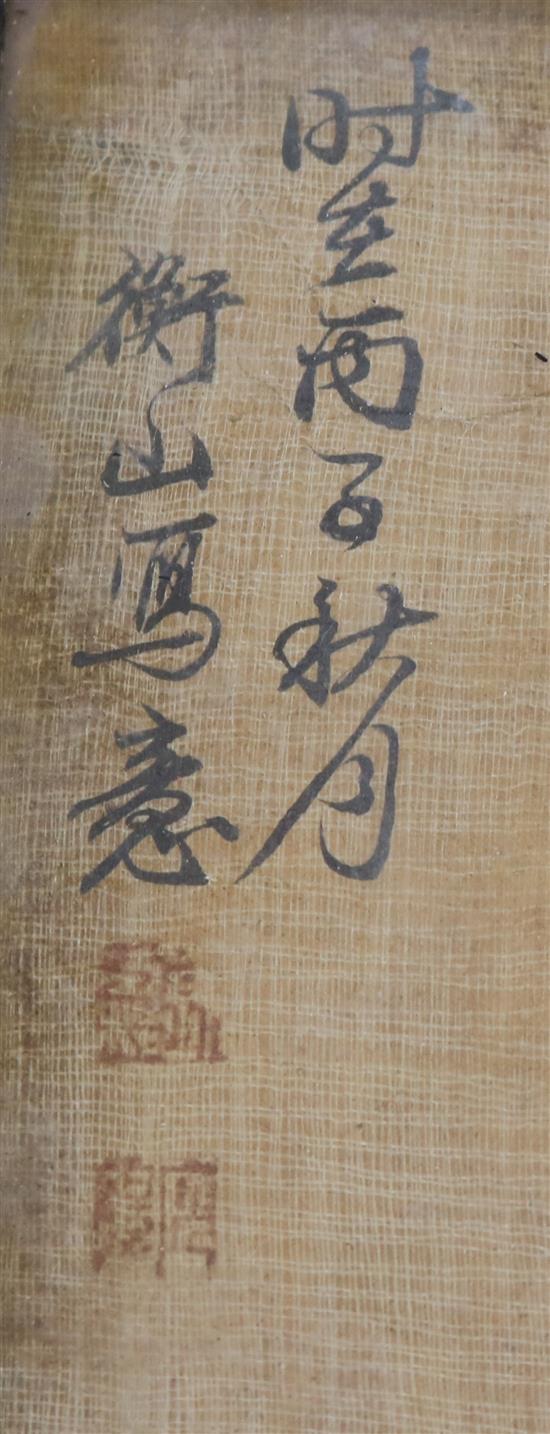 时在丙子秋月
衡山寫意